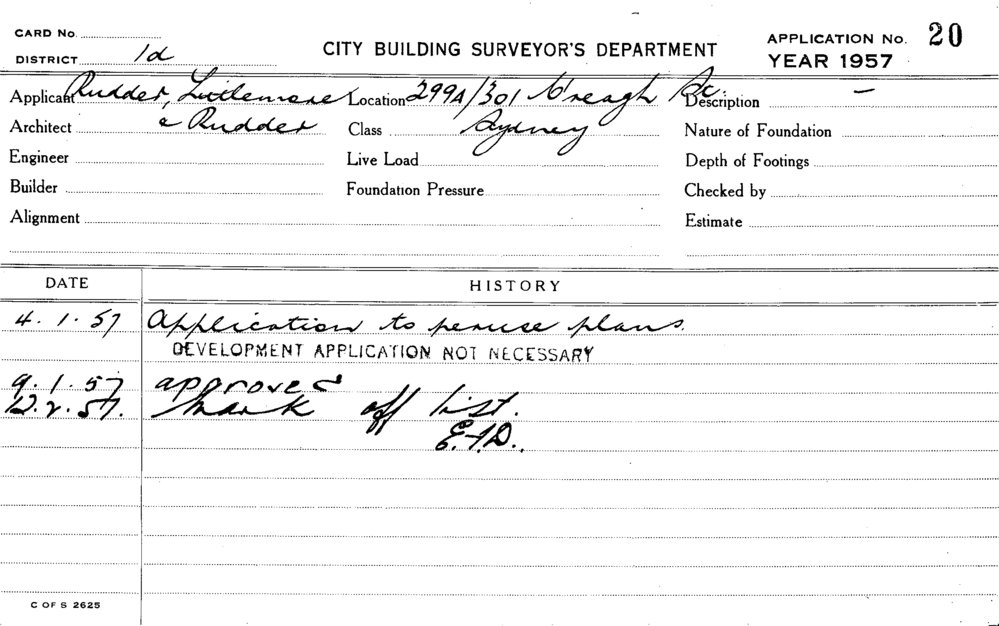 CARD No.
DISTRICT 1d
CITY BUILDING SURVEYOR'S DEPARTMENT
APPLICATION No. 20
YEAR 1957
Applicant Rudder, Littlemore Location 299A/301 C'reagh St. Description —
Architect & Rudder Class Sydney Nature of Foundation
Engineer Live Load Depth of Footings
Builder Foundation Pressure Checked by
Alignment Estimate
DATE HISTORY
4.1.57 Application to peruse plans.
DEVELOPMENT APPLICATION NOT NECESSARY
9.1.57 approved
12.2.57. Mark off list.
C OF S 2625